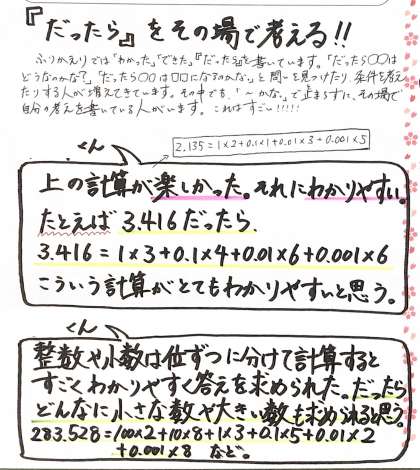 『だったら』をその場で考える!!
ふりかえりでは「わかった」「できた」『だったら』を書いています。「だったら〇〇は
どうなのかな?」「だったら〇〇は□□になるのかな」と問いを見つけたり、条件を変え
たりする人が増えてきています。その中でも、「〜かな。」で止まらずに、その場で
自分の考えを書いている人がいます。これはすごい!!!!!
2.135=1×2+0.1×1+0.01×3+0.001×5
くん
上の計算が楽しかった。それにわかりやすい。
たとえば 3.416だったら、
3.416=1×3+0.1×4+0.01×6+0.001×6
こういう計算がとてもわかりやすいと思う。
くん
整数や小数は位ずつに分けて計算すると
すごくわかりやすく答えを求められた。だったら
どんなに小さな数や大きい数も求められると思う。
283.528=100×2+10×8+1×3+0.1×5+0.01×2
+0.001×8 など。